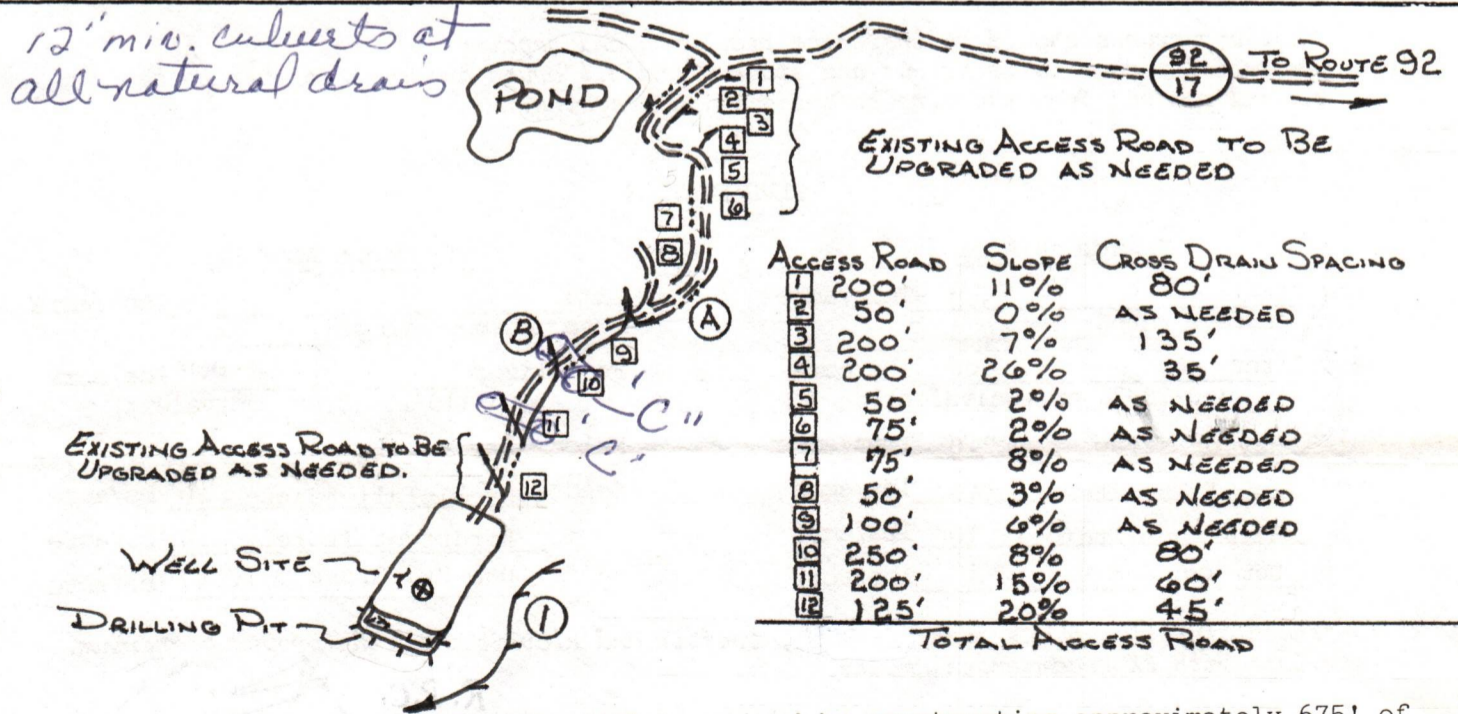 12" min. culverts at
all natural drais
POND
92
17
TO ROUTE 92
1
2
3
4
5
6
7
8
9
10
11
12
EXISTING ACCESS ROAD TO BE
UPGRADED AS NEEDED
A
B
"C"
"C"
EXISTING ACCESS ROAD TO BE
UPGRADED AS NEEDED.
WELL SITE
DRILLING PIT
1
ACCESS ROAD SLOPE CROSS DRAIN SPACING
1 200' 11% 80'
2 50' 0% AS NEEDED
3 200' 7% 135'
4 200' 26% 35'
5 50' 2% AS NEEDED
6 75' 2% AS NEEDED
7 75' 8% AS NEEDED
8 50' 3% AS NEEDED
9 100' 6% AS NEEDED
10 250' 8% 80'
11 200' 15% 60'
12 125' 20% 45'
TOTAL ACCESS ROAD
approximately 675' of